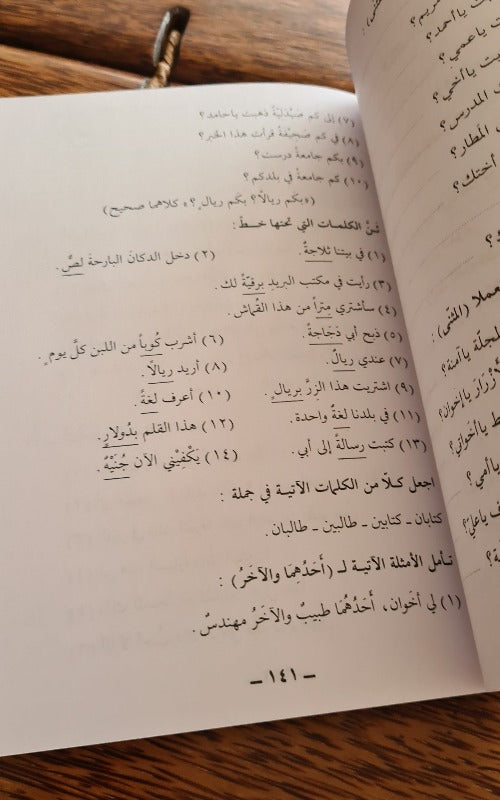 (٧) إلى كم صَيْدَلِيَّةً ذهبت ياحامد؟
(٨) في كم صَحِيْفَةً قرأت هذا الخبر؟
(٩) بكم جامعةً درست؟
(١٠) كم جامعةً في بلدكم؟
(«بكم ريالًا؟ بكم ريالٍ؟» كلاهما صحيح)
ثنِّ الكلمـات التي تحتها خـط :
(١) في بيتنا ثلاجةٌ. (٢) دخل الدكانَ البارحةَ لصٌّ.
(٣) رأيت في مكتب البريد برقيّةً لك.
(٤) سأشتري متراً من هذا القُماش.
(٥) ذبح أبي دَجَاجةً. (٦) أشرب كُوباً من اللبن كلَّ يوم.
(٧) عندي ريالٌ. (٨) أريد ريالًا.
(٩) اشتريت هذا الزِرَّ بريالٍ. (١٠) أعرف لغةً.
(١١) في بلدنا لغةٌ واحدة. (١٢) هذا القلم بدُولارٍ.
(١٣) كتبت رسالةً إلى أبي. (١٤) يَكْفِيْنِي الآن جُنَيْهٌ.
اجعل كـلًا من الكلمات الآتيـة في جملة :
كتابان ـ كتابين ـ طالبين ـ طالبان.
تـأمل الأمثلة الآتيـة لـ (أَحَدُهِمَا والآخَرُ) :
(١) لي أخَوان، أَحَدُهُمَا طبيبٌ والآخَرُ مهندسٌ.
ــ ١٤١ ــ
مريم؟
ياأحمد؟
ياعمي؟
ياأخي؟
المدرس؟
المطار؟
أختك؟
(المثنى) :
ياآمنة؟
ياإخوان؟
ياأخواتي؟
ياأمي؟
ياعليُّ؟